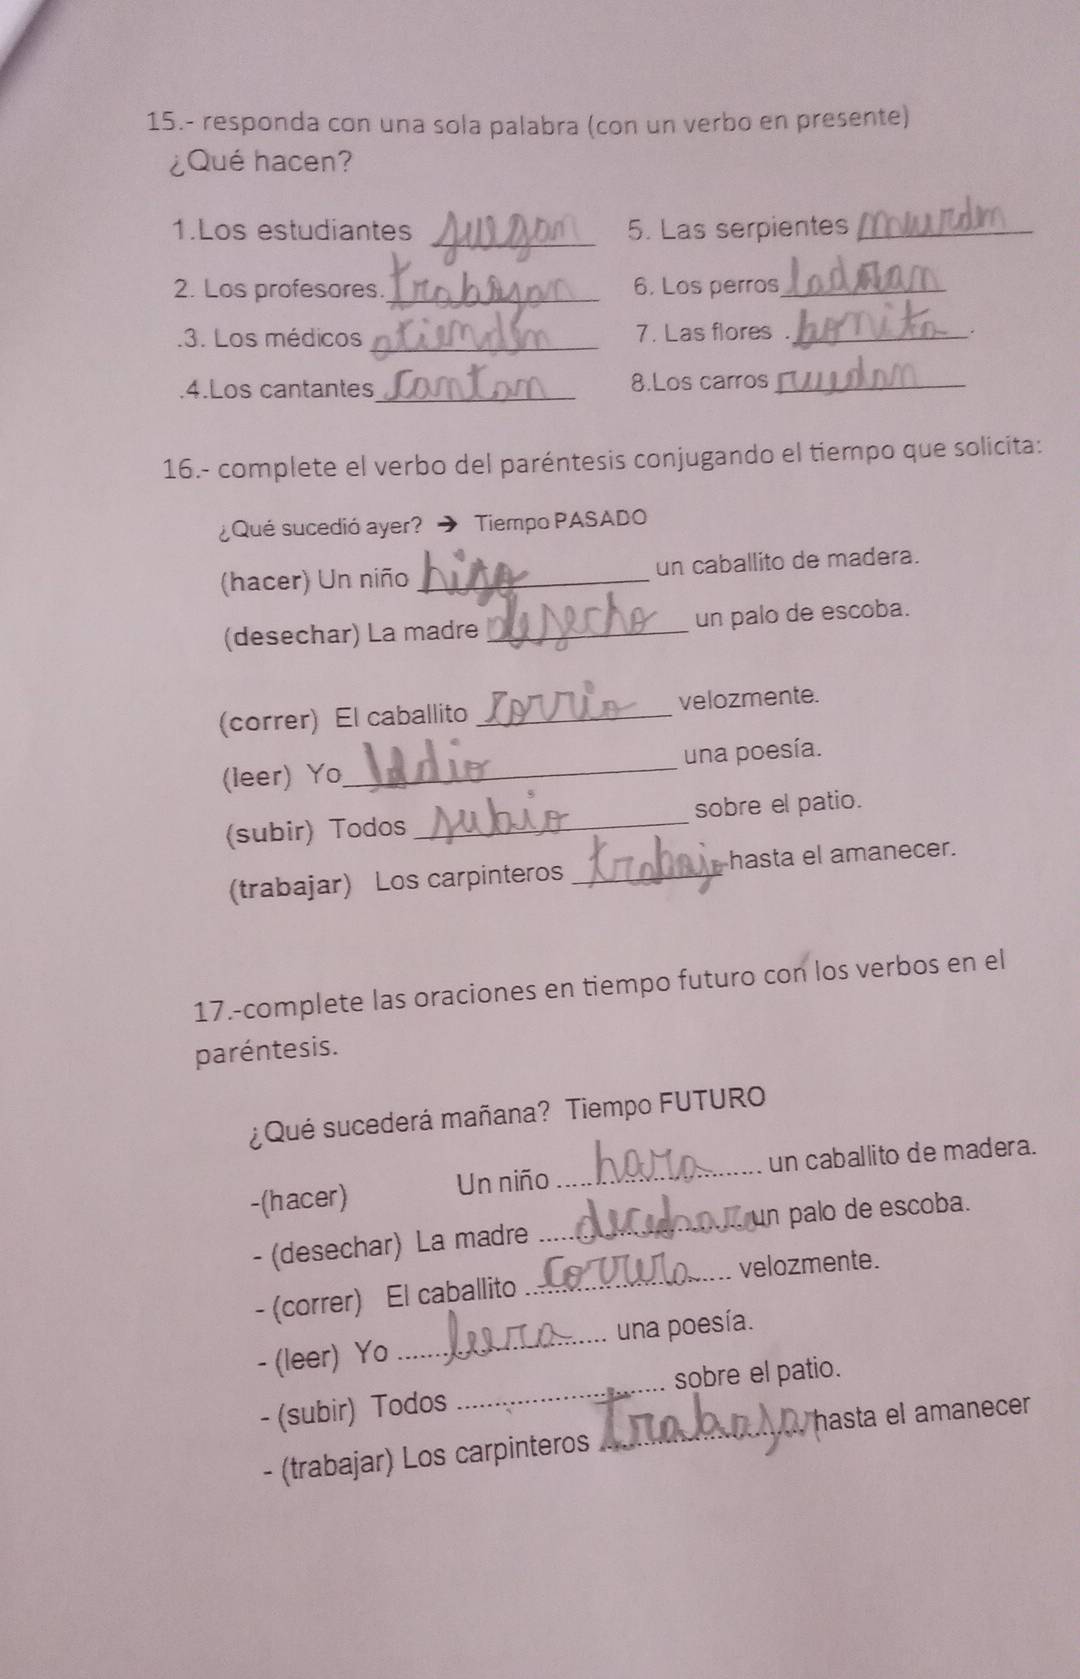 15.- responda con una sola palabra (con un verbo en presente)
¿Qué hacen?
1.Los estudiantes juegan 5. Las serpientes
2. Los profesores. trabajan 6. Los perros ladran
.3. Los médicos atienden 7. Las flores . bonita.
.4.Los cantantes cantan 8.Los carros ruedan
16.- complete el verbo del paréntesis conjugando el tiempo que solicita:
¿Qué sucedió ayer? → Tiempo PASADO
(hacer) Un niño hizo un caballito de madera.
(desechar) La madre desecho un palo de escoba.
(correr) El caballito corrio velozmente.
(leer) Yo una poesía.
(subir) Todos subio sobre el patio.
(trabajar) Los carpinteros trabajo hasta el amanecer.
17.-complete las oraciones en tiempo futuro con los verbos en el
paréntesis.
¿Qué sucederá mañana? Tiempo FUTURO
-(hacer) Un niño hara un caballito de madera.
- (desechar) La madre un palo de escoba.
- (correr) El caballito velozmente.
- (leer) Yo leera una poesía.
- (subir) Todos sobre el patio.
- (trabajar) Los carpinteros hasta el amanecer